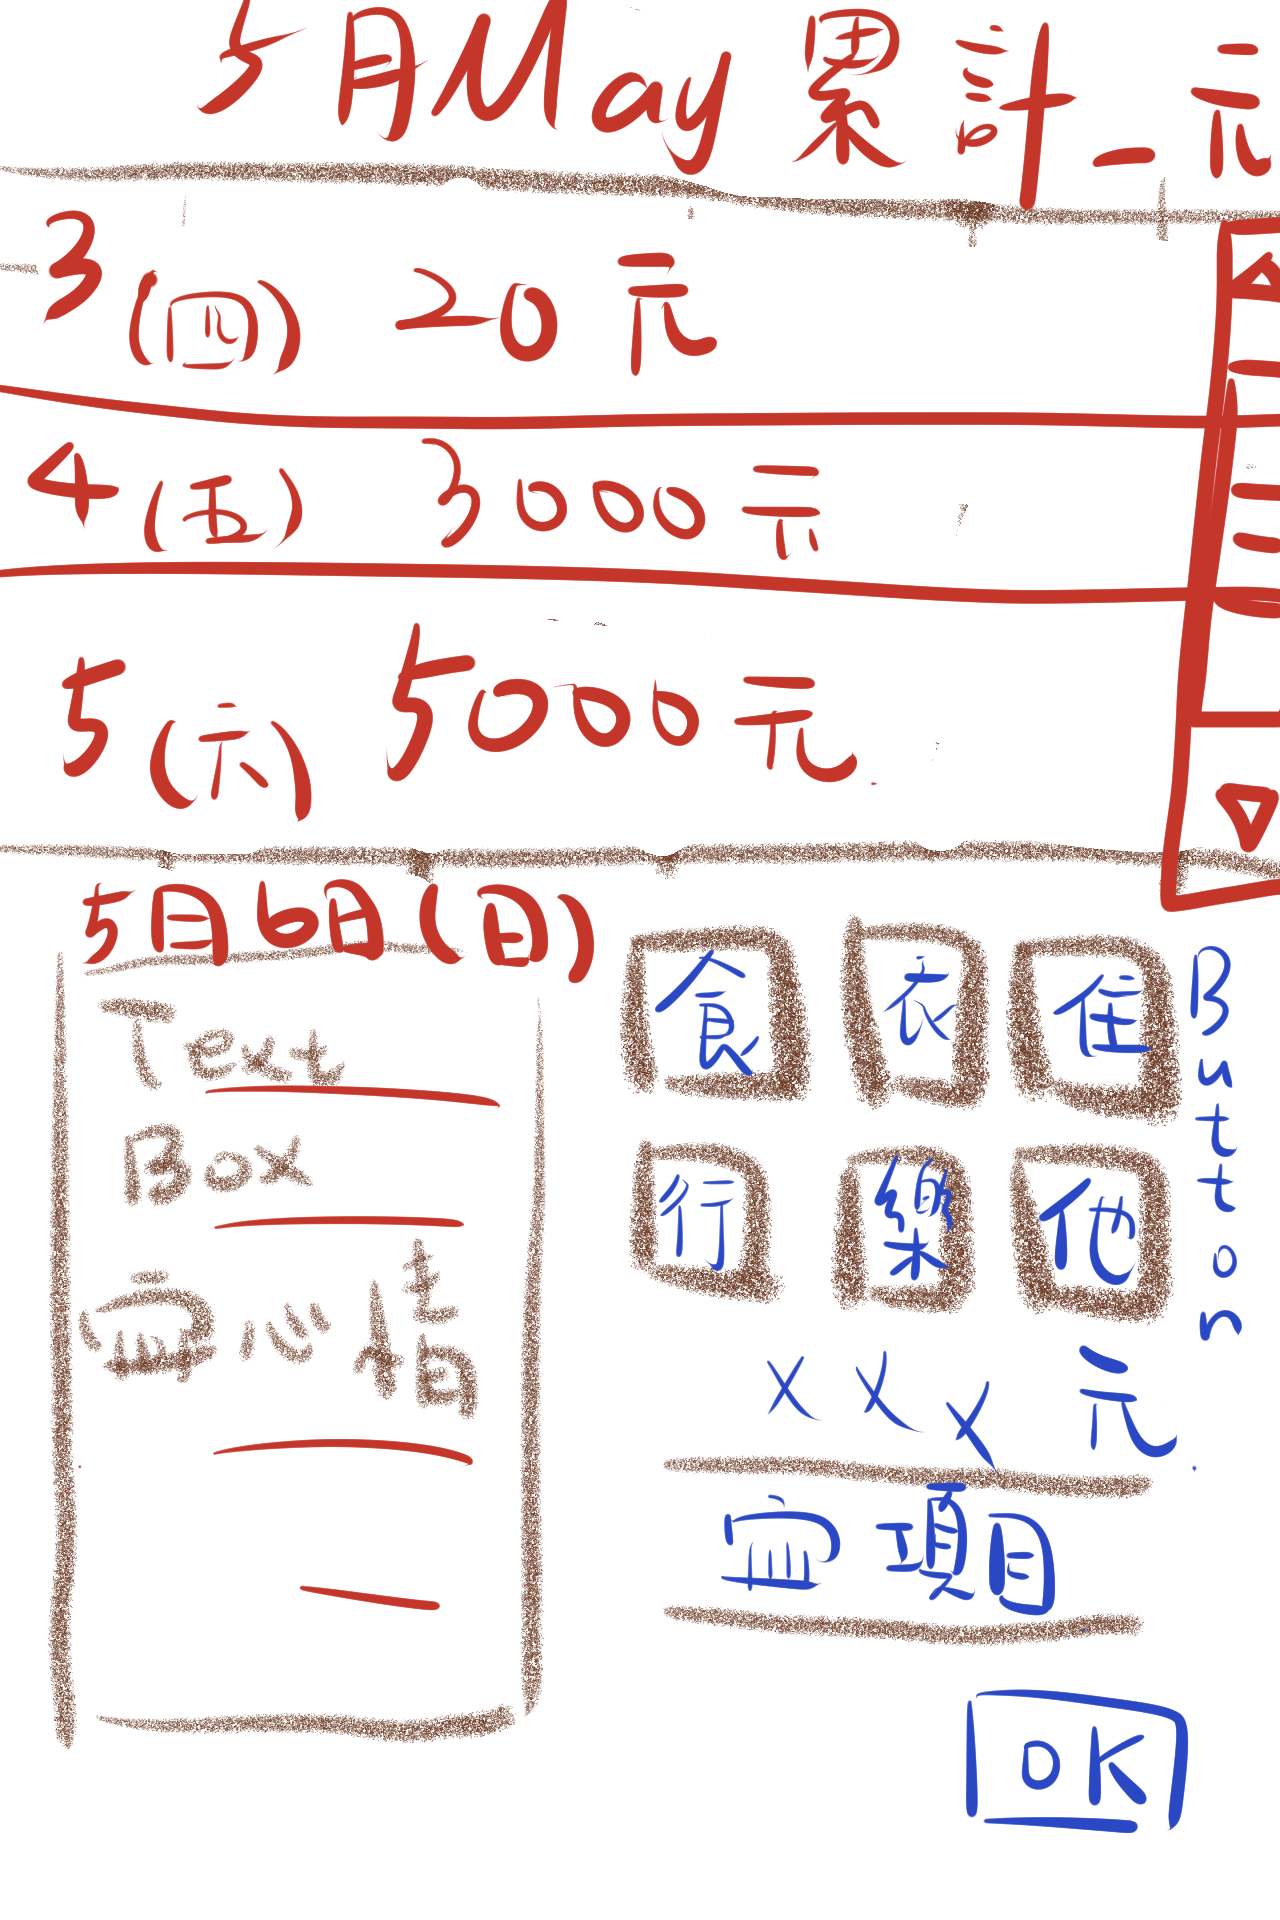 5月May 累計_元
3(四) 20元
4(五) 3000元
5(六) 5000元
5月6日(日)
Text
Box
心情
食 衣 住
行 樂 他
Button
XXX元
項目
OK